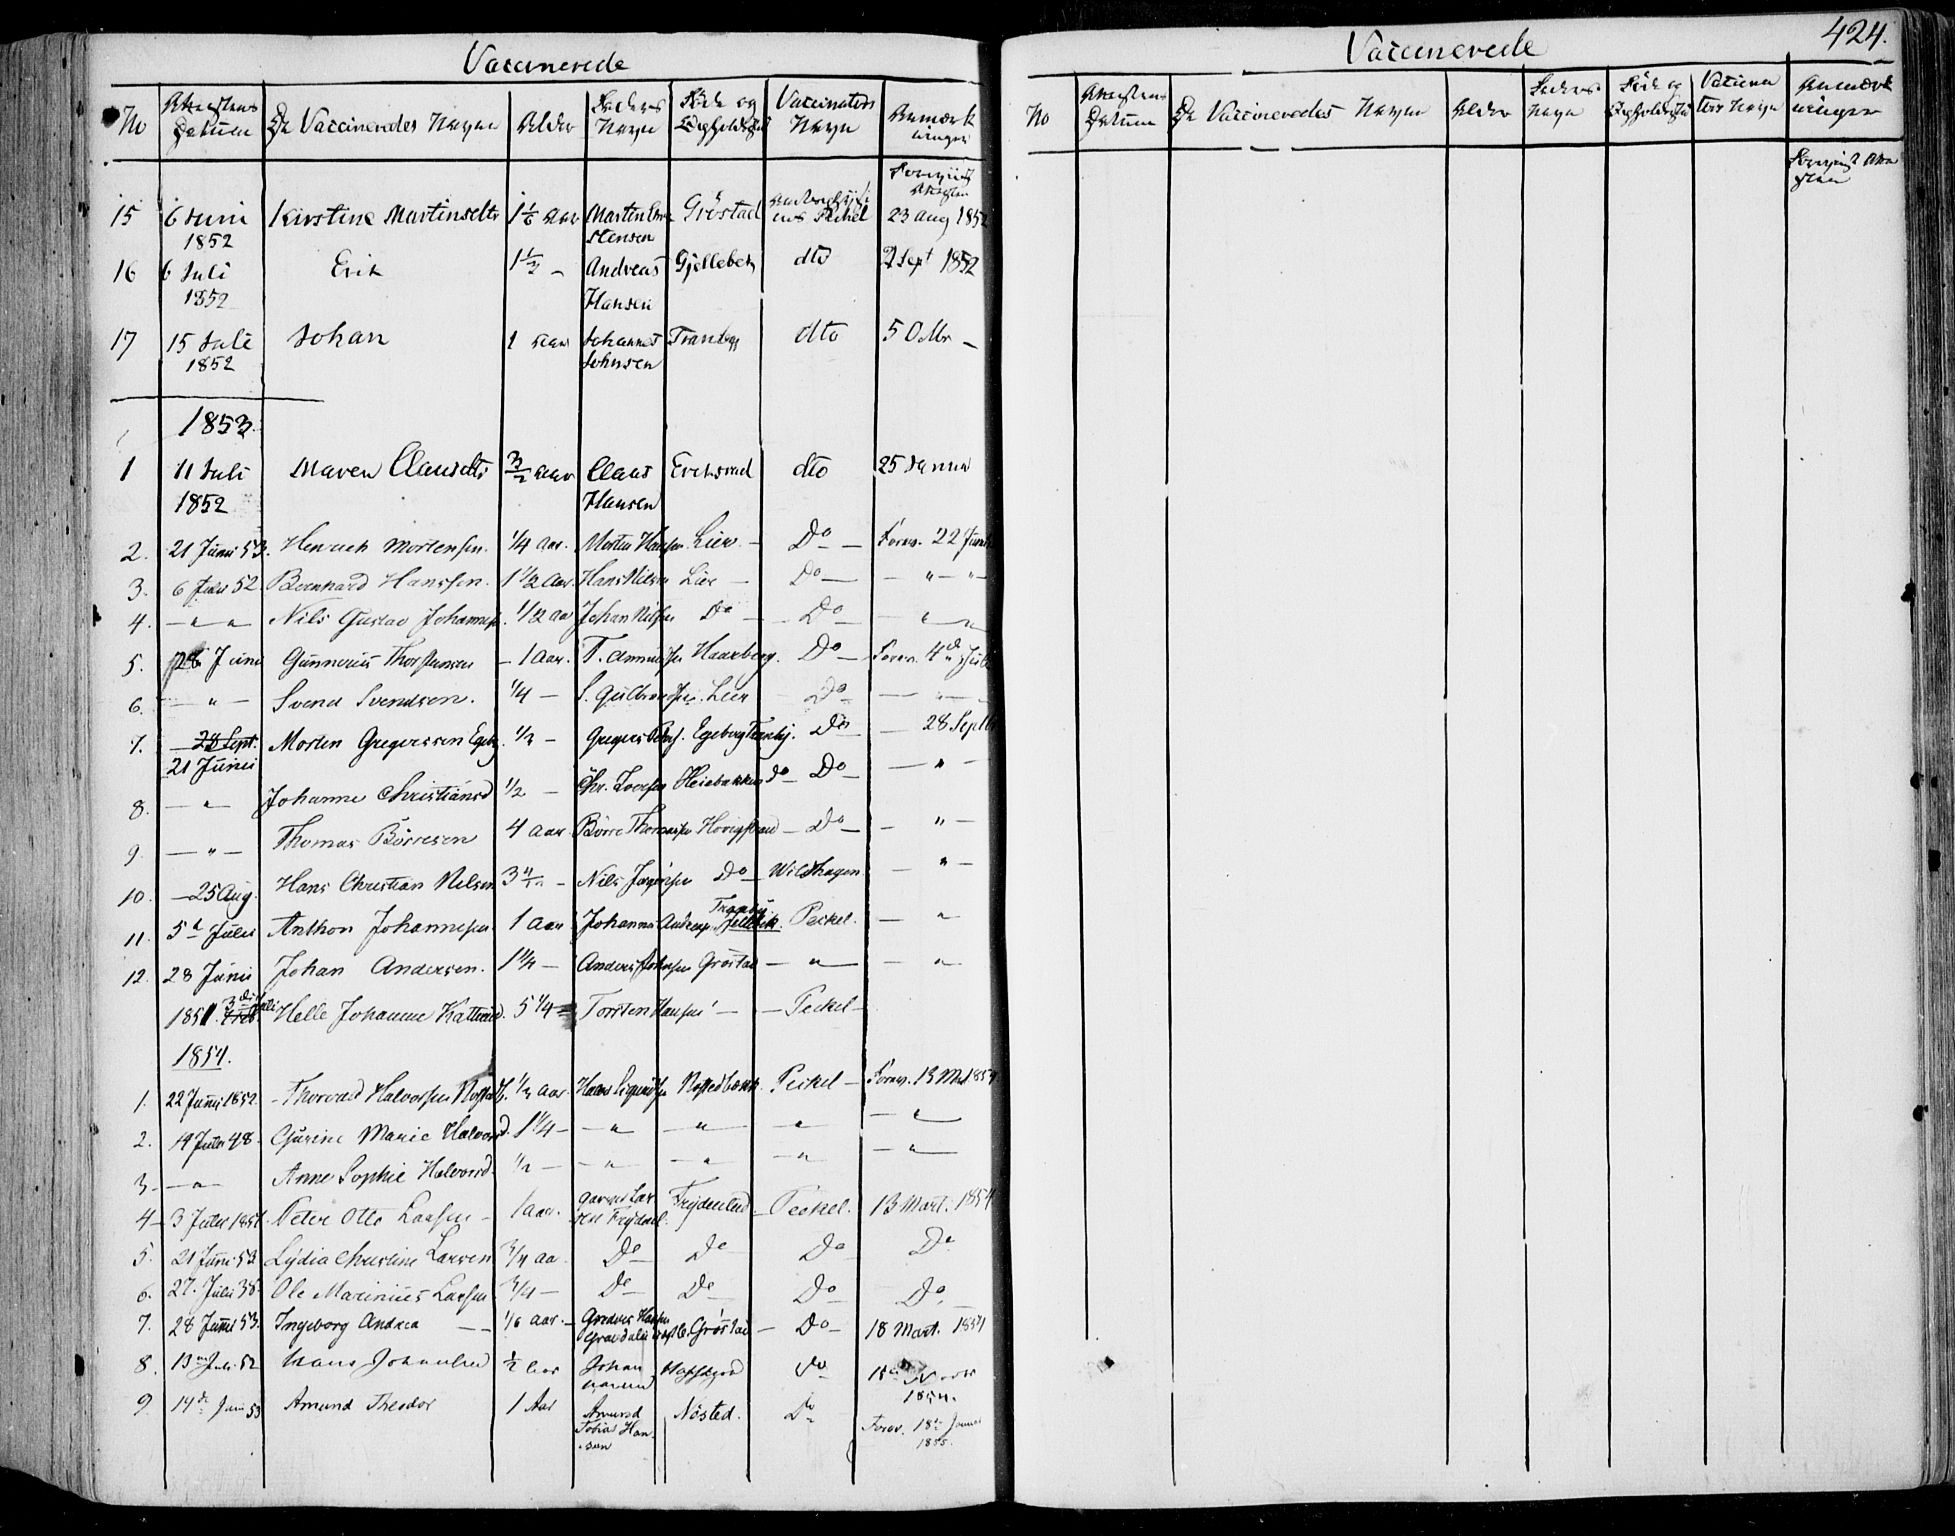 Vaccinerede
No Attestens Datum De Vaccineredes Navne Alder Faders Navn Føde og Opholdssted Vaccinators Navn Anmærkninger
15 6 Juni 1852 Kirstine Martinsdtr 1 1/6 aar Martin Christensen Gröstad Peckel 23 Aug 1852
16 6 Juli 1852 Erik 1 1/2 - Andreas Hansen Gjellebek dto 2 Sept 1852
17 15 Juli 1852 Johan 1 aar Johannes Johnsen Tranbyg dto 5 Octbr -
1853.
1 11 Juli 1852 Maren Clausdtr 3/2 aar Claus Hansen dto 25 Janua
2. 21 Junii 53. Henrich Mortensen. 1/4 aar. Morten Hansen Lier - Do - Forev. 22 Junii
3. 6 Julii 52. Bernhard Hanssen. 1 1/2 aar Hans Nilsen Lier - Do - - " - " -
4. - " " Nils Gustav Johannesen. 1/2 aa Johan Nilsen Do - Do - " "
5. 28 Junii Gunnerius Thorstensen - 1 aar. Haarberg. Do - Forev. 4de Juli
6. - " - Svend Svendsen. 1/4 - S. Gulbrandsen. Lier Do - " -
7. - 28 Sept. 21 Junii Morten Gregerssen Egeb. 1/2 - Gregers Egeberg Tranby. Do - 28 Septb
8. - " - Johanne Christiansd 1/2 - Chr. Iversen Heiabakken do Do - - " -
9. - " - Thomas Börresen 4 aar Börre Thomassen - Do - - " -
10. - 25 Aug. Hans Christian Nilsen 3 - Nils Jörgensen Do - Wildhagen - " -
11. 5te Julii Anthon Johannesen 1 Aar Johannes Andersen Tranby Jellebek. Peckel. - "
12. 28 Junii Johan Andersen. 1 1/4 - Anders Johnsen Gröstad - " - - "
1851. 3die Juli Helle Johanne 5 1/4 Torsten Hansen - - Peckel -
1854.
1. 22 Junii 1852. - Thorvald Halvorsen 1/2 aar. Peckel - Forev. 13 Mrt 1854
2. 14 Julii 48. Gurine Marie Halvorsd. 1 1/4 - - " - " " - "
3. - " Anne Sophie Halvorsd. 1/2 - - " - " - " - "
4 - 3 Julii 1851. Peter Otto Larsen - 1 aar. Larsen Frydenlund - Peckel. 13 Mart. 1854
5. 21 Junii 53 Lydia Christine Larsen 3/4 aa. Do Do Do Do
6. 27. Julii 38. Ole Marinius Larsen 3/4 - Do Do Do Do.
7. 28 Junii 53. Ingeborg Andrea - 1/6 aar. - Gröstad - Do - 18 Mart. 1854
8. 13de Juli 52 Hans 1/2 aar Johan do 18de Novbr 1854.
9 14de Juni 53 Amund Theodor 1 Aar Amund Tobias Hansen Nösted. Do Forev. 18de Januar 1855.
Vaccinerede
424.
No Attestens Datum De Vaccineredes Navne Alder Faders Navn Føde og Opholdssted Vaccinators Navn Anmærkninger